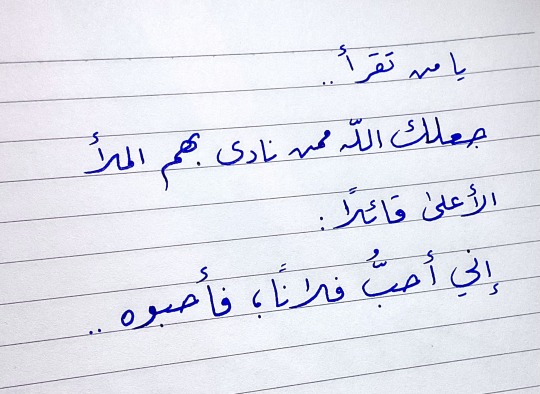 يا من تقرأ ..
جعلك اللّه ممن نادى بهم الملأ
الأعلى قائلًا :
إني أحبُّ فلانًا، فأحبوه ..